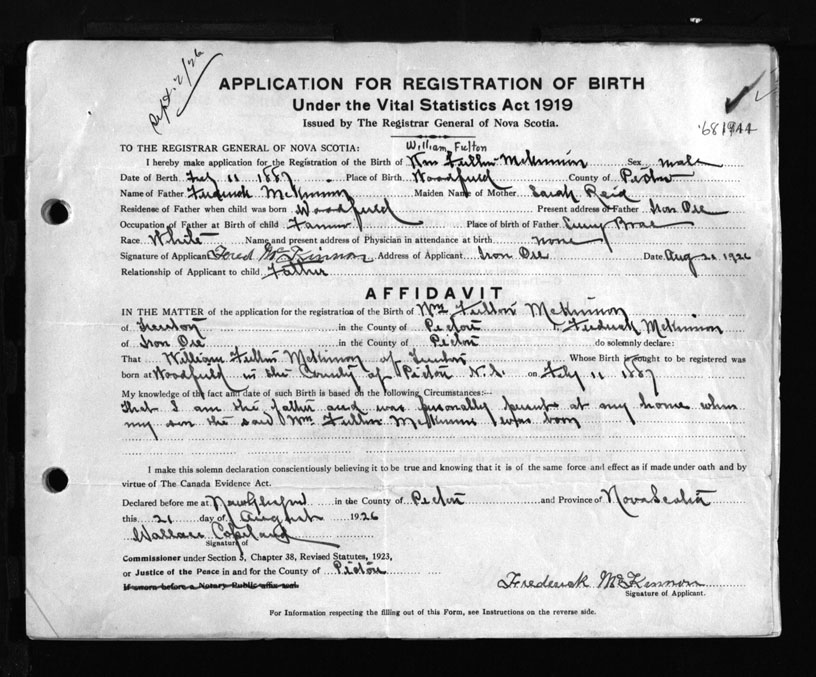 Sept. 2/26
APPLICATION FOR REGISTRATION OF BIRTH
Under the Vital Statistics Act 1919
Issued by The Registrar General of Nova Scotia.
William Fulton
TO THE REGISTRAR GENERAL OF NOVA SCOTIA:
I hereby make application for the Registration of the Birth of Wm Fulton McKinnon Sex male
Date of Birth July 11 1887 Place of Birth Woodfield County of Pictou
Name of Father Frederick McKinnon Maiden Name of Mother Sarah Reid
Residence of Father when child was born Woodfield Present address of Father Iron Ore
Occupation of Father at Birth of child Farmer Place of birth of Father Sunny Brae
Race White Name and present address of Physician in attendance at birth none
Signature of Applicant Fred McKinnon Address of Applicant Iron Ore Date Aug 21 1926
Relationship of Applicant to child Father
AFFIDAVIT
IN THE MATTER of the application for the registration of the Birth of Wm Fulton McKinnon
of Trenton in the County of Pictou Frederick McKinnon
of Iron Ore in the County of Pictou do solemnly declare:
That William Fulton McKinnon of Trenton Whose Birth is sought to be registered was
born at Woodfield in the County of Pictou N.S. on July 11 1887
My knowledge of the fact and date of such Birth is based on the following Circumstances:—
that I am the father and was personally present at my home when
my son the said Wm Fulton McKinnon was born
I make this solemn declaration conscientiously believing it to be true and knowing that it is of the same force and effect as if made under oath and by
virtue of The Canada Evidence Act.
Declared before me at New Glasgow in the County of Pictou and Province of Nova Scotia
this 21 day of August 1926
Wallace Copeland
Signature of
Commissioner under Section 5, Chapter 38, Revised Statutes, 1923,
or Justice of the Peace in and for the County of Pictou
If sworn before a Notary Public affix seal.
Frederick McKinnon
Signature of Applicant.
For Information respecting the filling out of this Form, see Instructions on the reverse side.